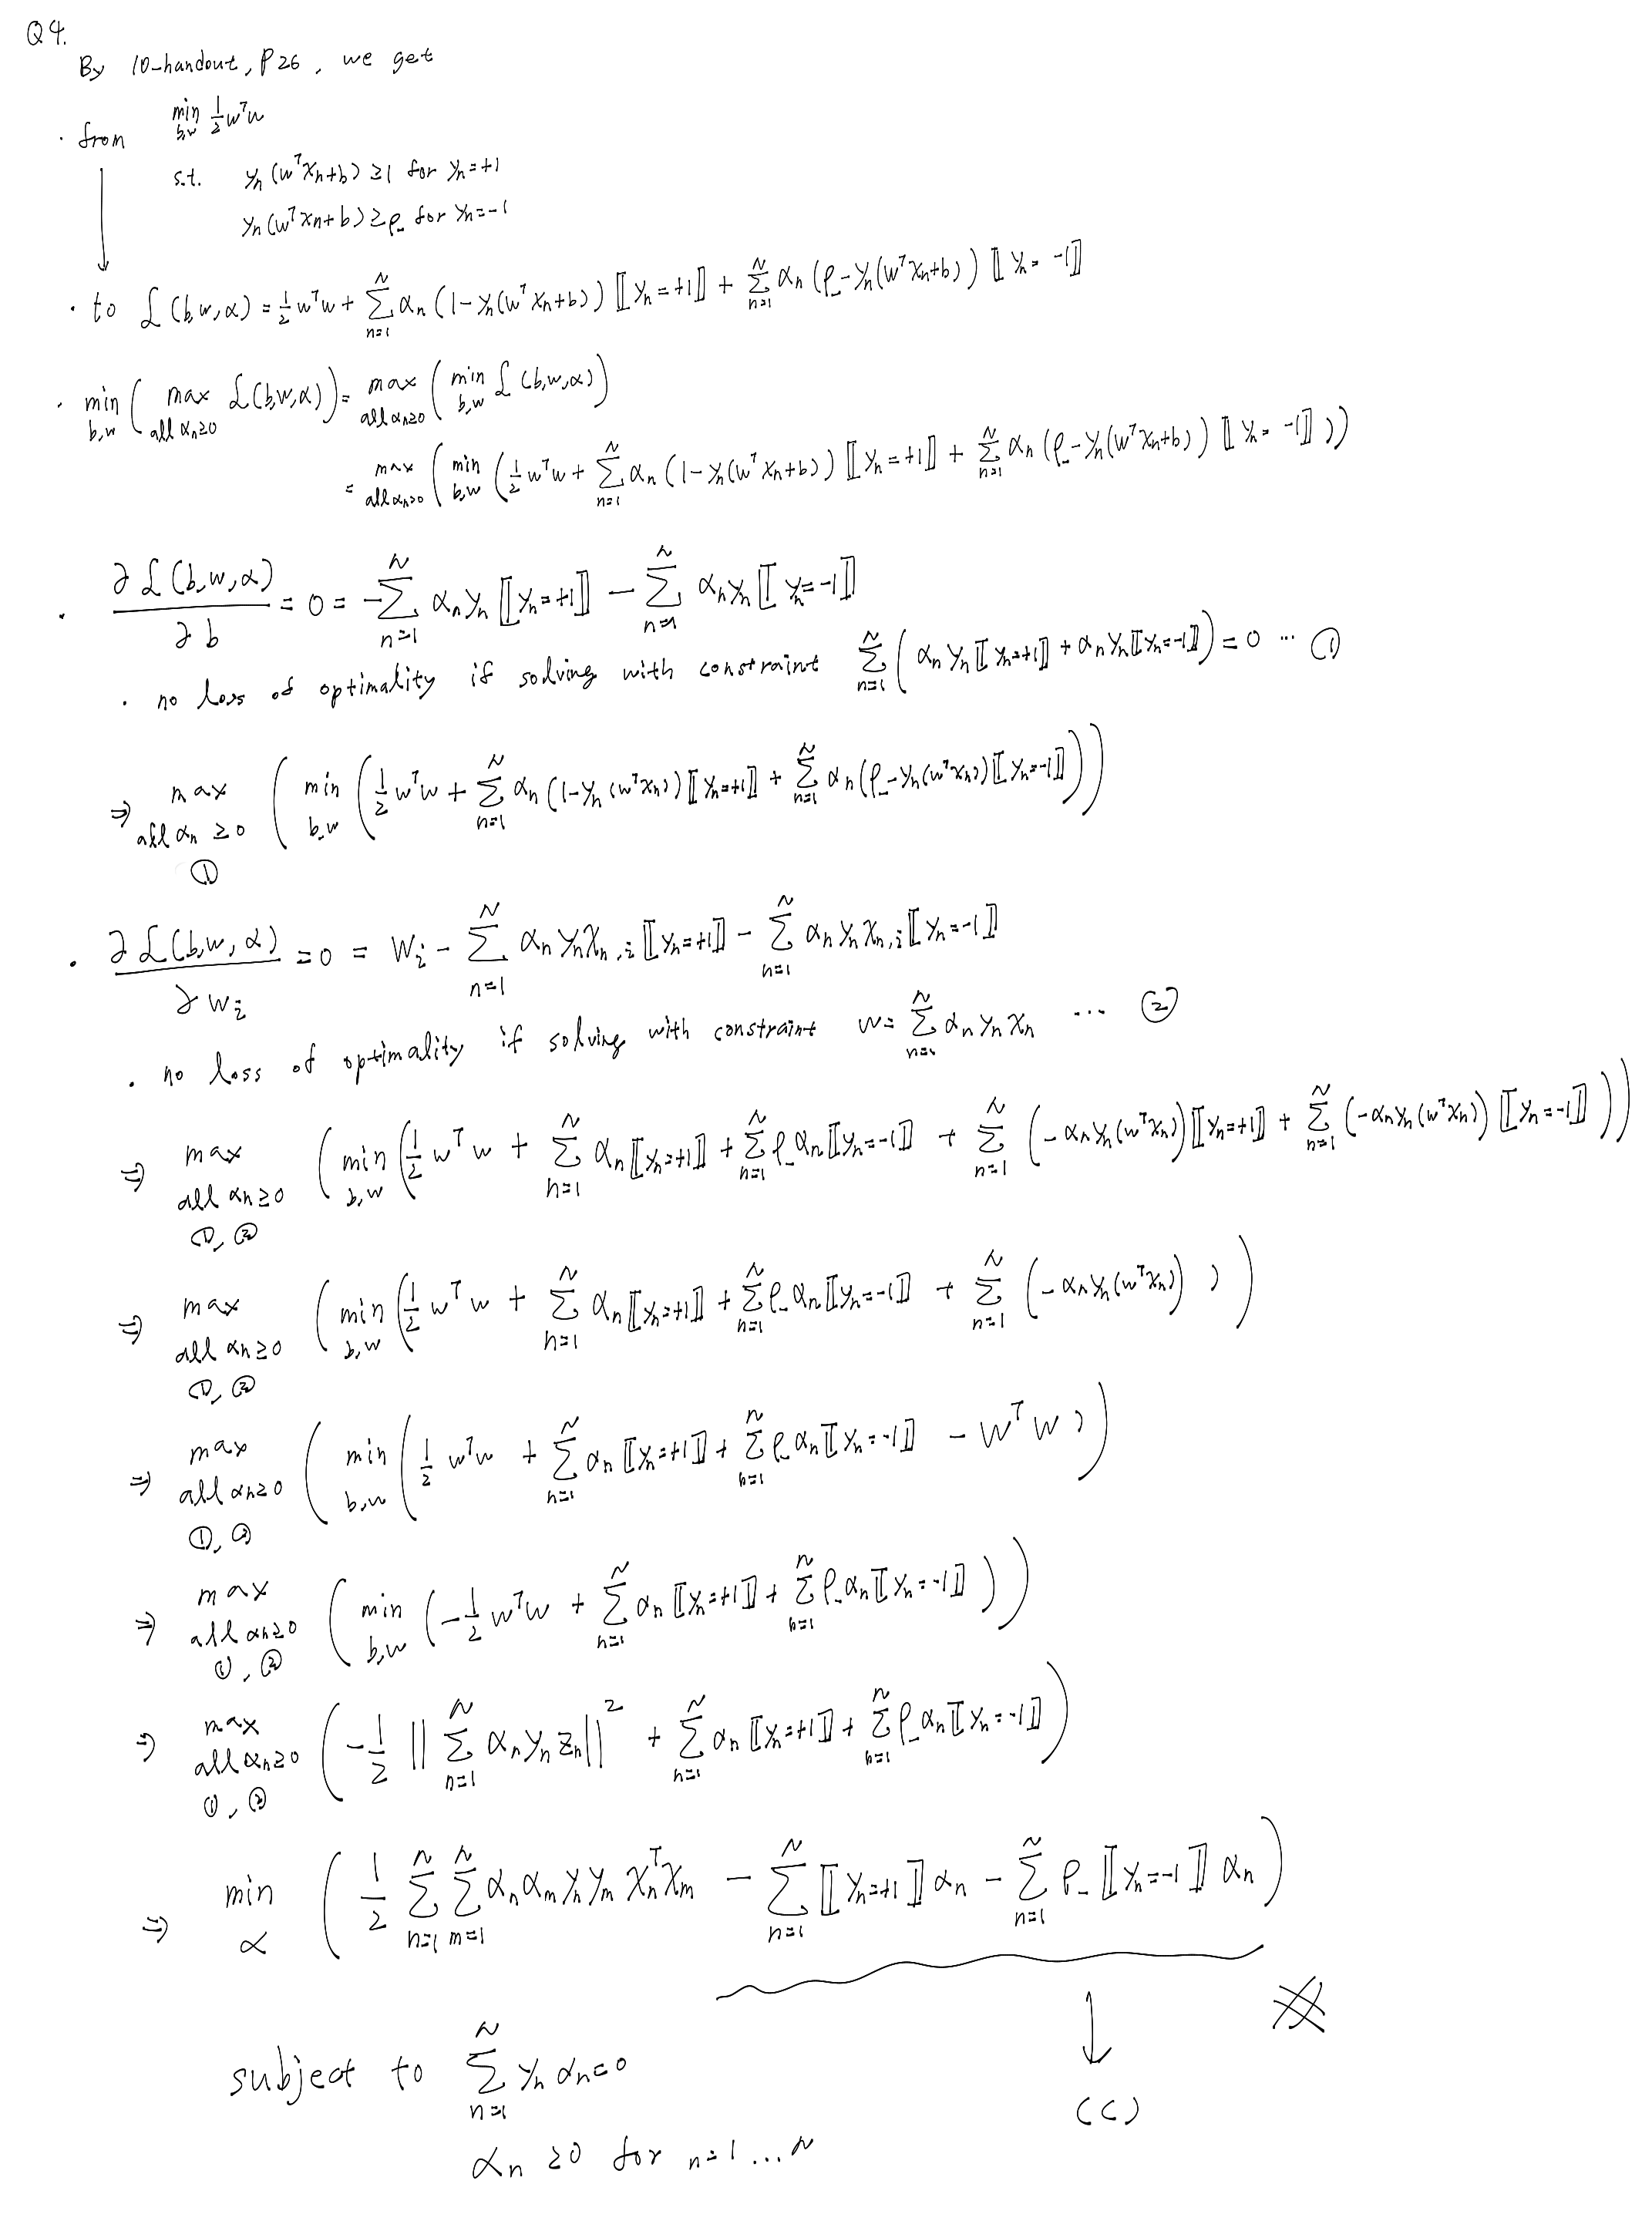 Q4.
By 10-handout, P26, we get
· from min_{b,w} ½ w^T w
s.t. y_n (w^T x_n + b) ≥ 1 for y_n = +1
y_n (w^T x_n + b) ≥ ρ_- for y_n = -1
· to ℒ(b,w,α) = ½ w^T w + Σ_{n=1}^N α_n (1 - y_n (w^T x_n + b)) ⟦y_n = +1⟧ + Σ_{n=1}^N α_n (ρ_- - y_n (w^T x_n + b)) ⟦y_n = -1⟧
· min_{b,w} ( max_{all α_n ≥ 0} ℒ(b,w,α) ) = max_{all α_n ≥ 0} ( min_{b,w} ℒ(b,w,α) )
= max_{all α_n ≥ 0} ( min_{b,w} ( ½ w^T w + Σ_{n=1}^N α_n (1 - y_n (w^T x_n + b)) ⟦y_n = +1⟧ + Σ_{n=1}^N α_n (ρ_- - y_n (w^T x_n + b)) ⟦y_n = -1⟧ ))
· ∂ℒ(b,w,α)/∂b = 0 = -Σ_{n=1}^N α_n y_n ⟦y_n = +1⟧ - Σ_{n=1}^N α_n y_n ⟦y_n = -1⟧
· no loss of optimality if solving with constraint Σ_{n=1}^N ( α_n y_n ⟦y_n = +1⟧ + α_n y_n ⟦y_n = -1⟧ ) = 0 ... ①
⇒ max_{all α_n ≥ 0 ①} ( min_{b,w} ( ½ w^T w + Σ_{n=1}^N α_n (1 - y_n (w^T x_n)) ⟦y_n = +1⟧ + Σ_{n=1}^N α_n (ρ_- - y_n (w^T x_n)) ⟦y_n = -1⟧ ))
· ∂ℒ(b,w,α)/∂w_i = 0 = w_i - Σ_{n=1}^N α_n y_n x_{n,i} ⟦y_n = +1⟧ - Σ_{n=1}^N α_n y_n x_{n,i} ⟦y_n = -1⟧
· no loss of optimality if solving with constraint w = Σ_{n=1}^N α_n y_n x_n ... ②
⇒ max_{all α_n ≥ 0 ①,②} ( min_{b,w} ( ½ w^T w + Σ_{n=1}^N α_n ⟦y_n = +1⟧ + Σ_{n=1}^N ρ_- α_n ⟦y_n = -1⟧ + Σ_{n=1}^N (-α_n y_n (w^T x_n)) ⟦y_n = +1⟧ + Σ_{n=1}^N (-α_n y_n (w^T x_n)) ⟦y_n = -1⟧ ))
⇒ max_{all α_n ≥ 0 ①,②} ( min_{b,w} ( ½ w^T w + Σ_{n=1}^N α_n ⟦y_n = +1⟧ + Σ_{n=1}^N ρ_- α_n ⟦y_n = -1⟧ + Σ_{n=1}^N (-α_n y_n (w^T x_n)) ))
⇒ max_{all α_n ≥ 0 ①,②} ( min_{b,w} ( ½ w^T w + Σ_{n=1}^N α_n ⟦y_n = +1⟧ + Σ_{n=1}^n ρ_- α_n ⟦y_n = -1⟧ - w^T w ))
⇒ max_{all α_n ≥ 0 ①,②} ( min_{b,w} ( -½ w^T w + Σ_{n=1}^N α_n ⟦y_n = +1⟧ + Σ_{n=1}^n ρ_- α_n ⟦y_n = -1⟧ ))
⇒ max_{all α_n ≥ 0 ①,②} ( -½ ||Σ_{n=1}^N α_n y_n z_n||^2 + Σ_{n=1}^N α_n ⟦y_n = +1⟧ + Σ_{n=1}^n ρ_- α_n ⟦y_n = -1⟧ )
⇒ min_α ( ½ Σ_{n=1}^N Σ_{m=1}^N α_n α_m y_n y_m x_n^T x_m - Σ_{n=1}^N ⟦y_n = +1⟧ α_n - Σ_{n=1}^N ρ_- ⟦y_n = -1⟧ α_n )
subject to Σ_{n=1}^N y_n α_n = 0
(C)
α_n ≥ 0 for n = 1 ... N